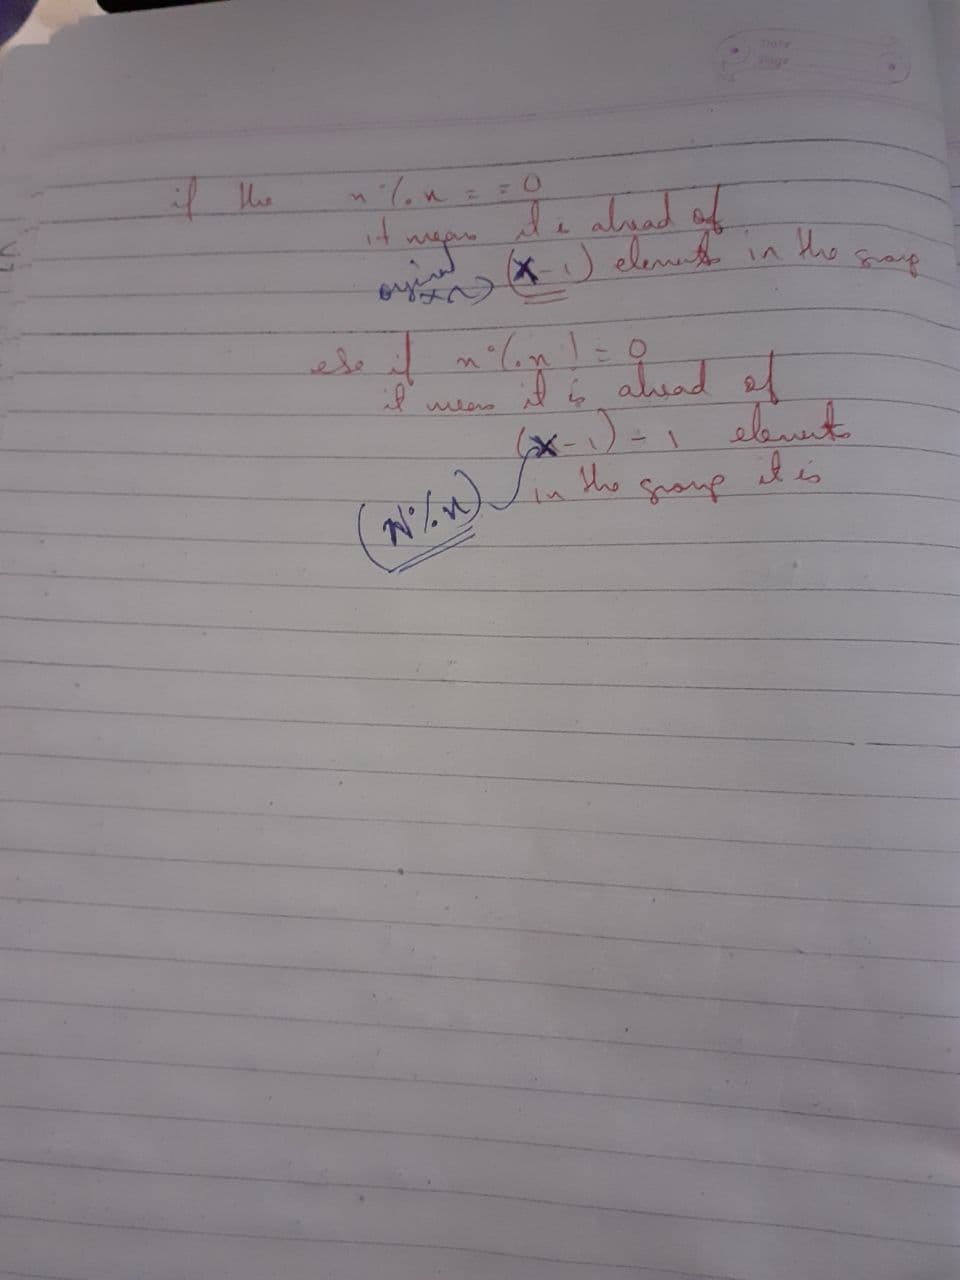 Date
Page
if the n % n = = 0
it means it is ahead of
original (x-1) elements in the group
else if n % n ! = 0
it means it is ahead of
(x-1) - 1 elements
in the group it is
(N % n)